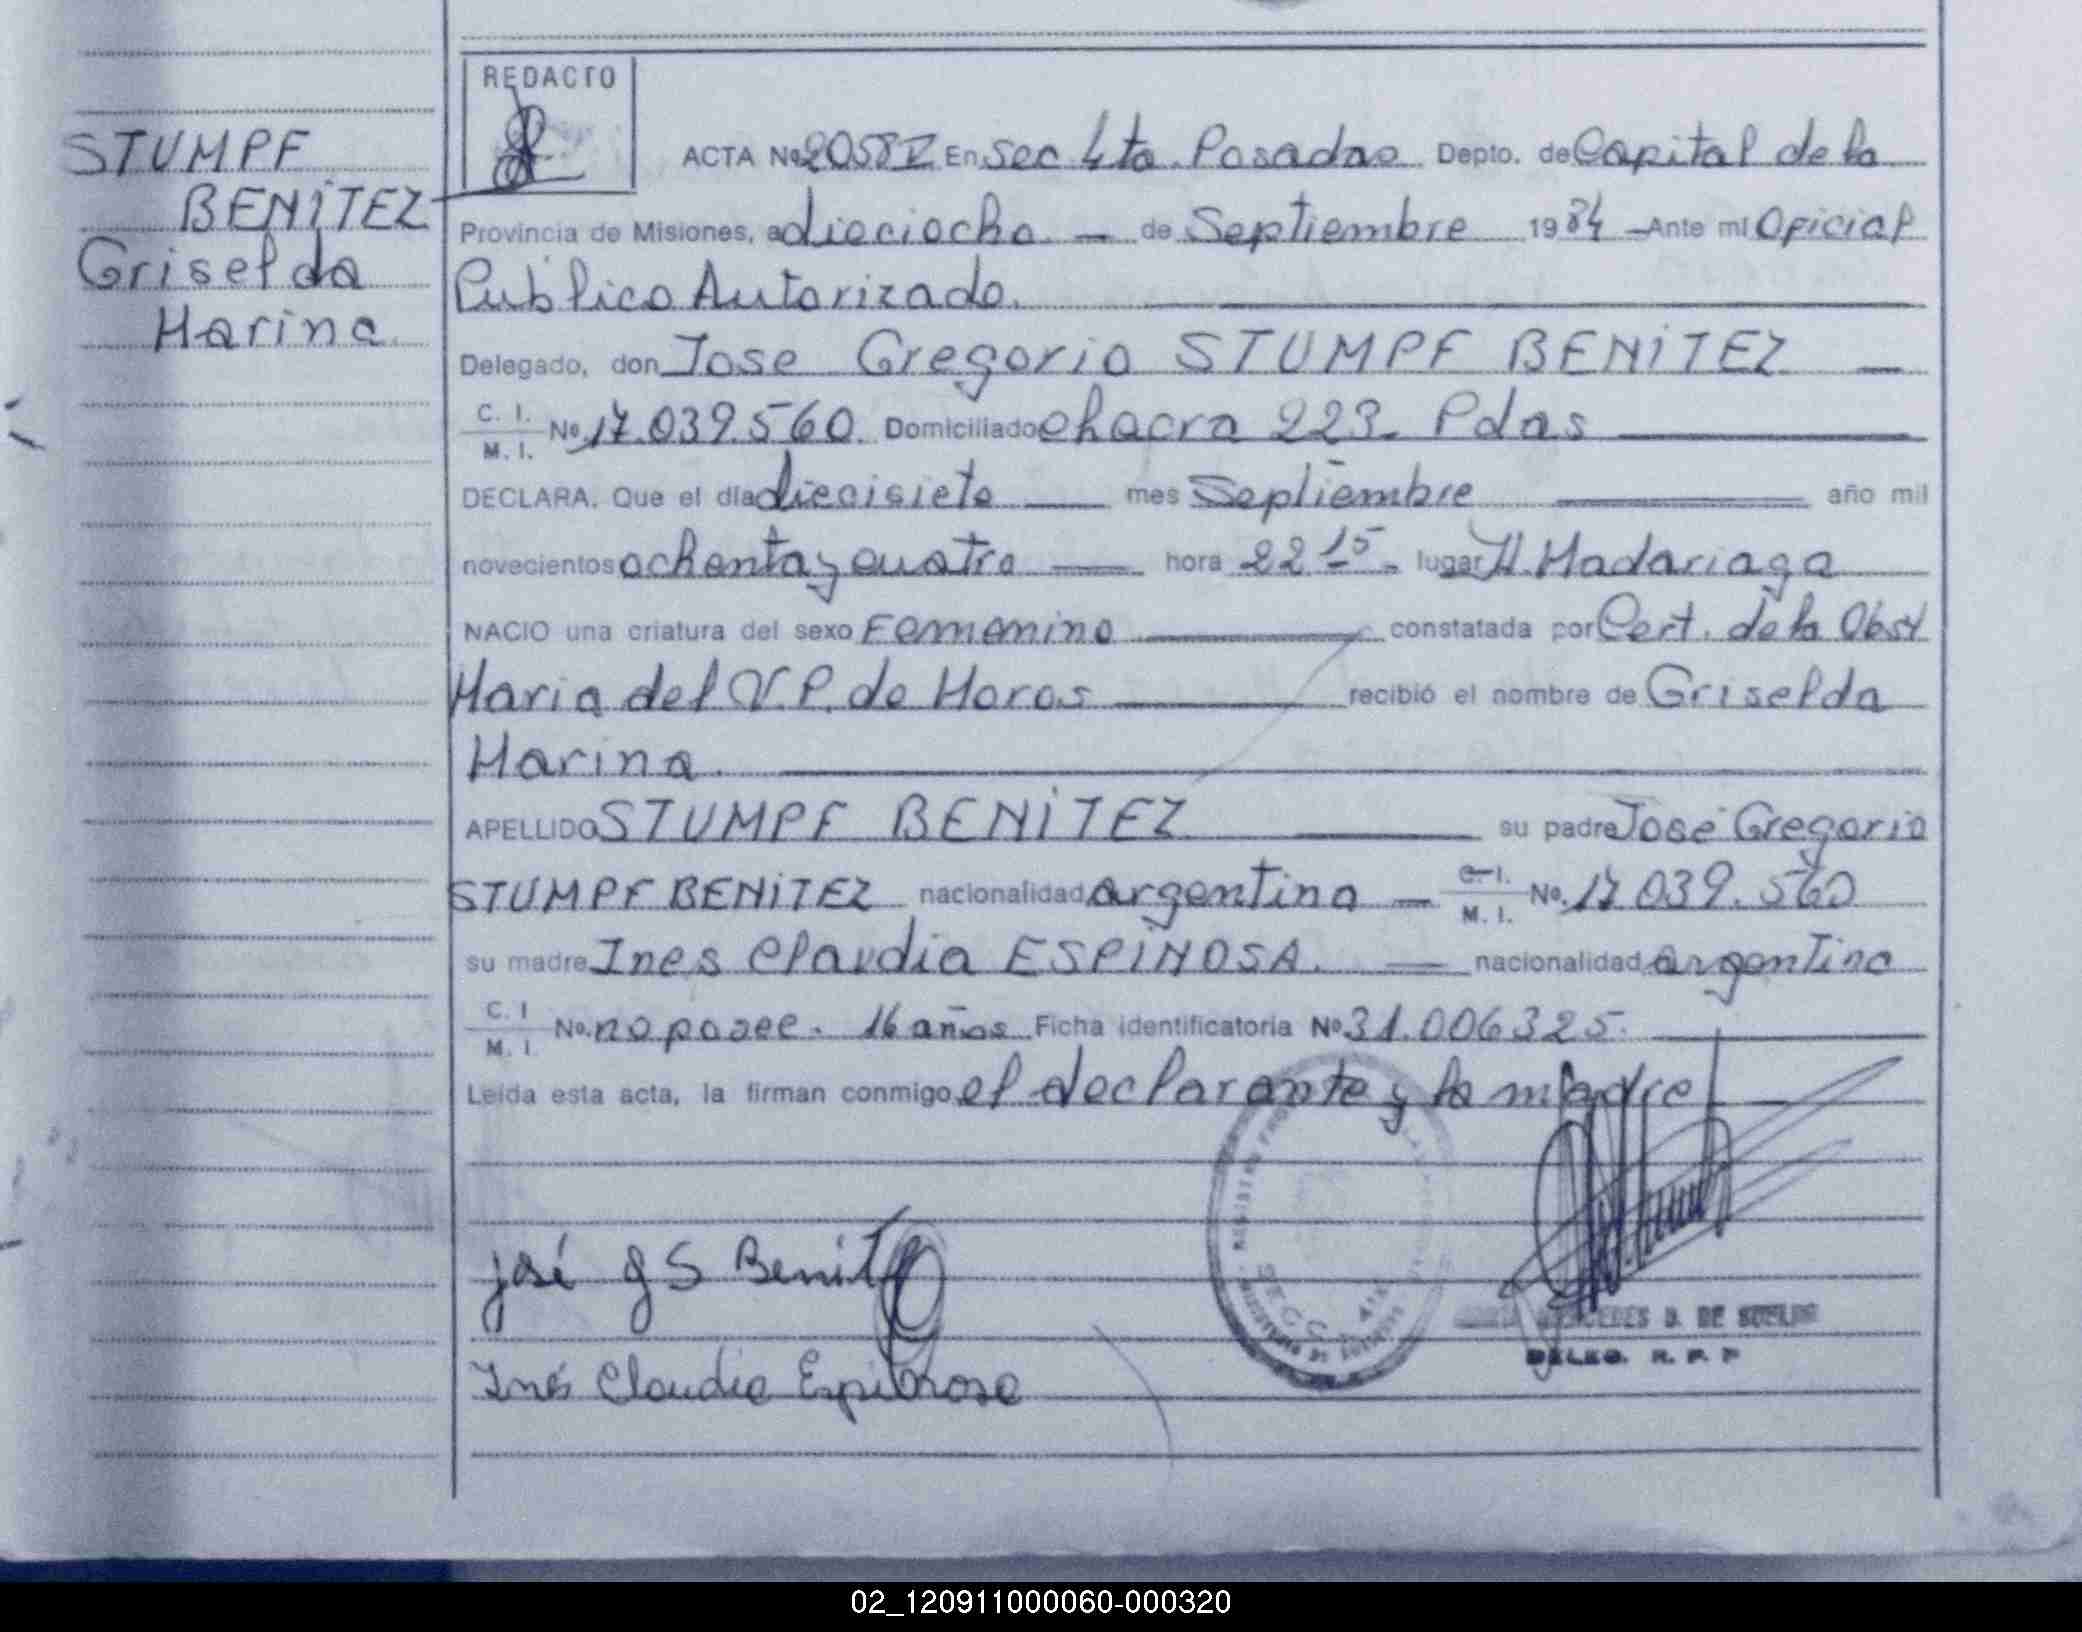 STUMPF
BENÍTEZ
Griselda
Marina
REDACTO
ACTA No 2058 I En Sec 4ta Posadas Depto. de Capital de la
Provincia de Misiones, a dieciocho — de Septiembre 1984 — Ante mí Oficial
Público Autorizado.
Delegado, don Jose Gregorio STUMPF BENÍTEZ —
C. I.
M. I. No 17.039.560. Domiciliado chacra 223- Pdas
DECLARA. Que el día diecisiete — mes Septiembre — año mil
novecientos ochenta y cuatro — hora 22 15 - lugar H. Madariaga
NACIO una criatura del sexo Femenino — constatada por Cert. de la Obst
Maria del V. P. de Moros — recibió el nombre de Griselda
Marina.
APELLIDO STUMPF BENÍTEZ — su padre José Gregorio
STUMPF BENÍTEZ nacionalidad argentina — C. I.
M. I. No. 17.039.560
su madre Ines Claudia ESPÍNOSA. — nacionalidad argentina
C. I
M. I. No. no posee. 16 años Ficha identificatoria No 31.006325.
Leída esta acta, la firman conmigo el declarante y la madre —
josé g S Benitez
Inés Claudia Espinosa
D. DE
DELEG. R. P. P
02_120911000060-000320